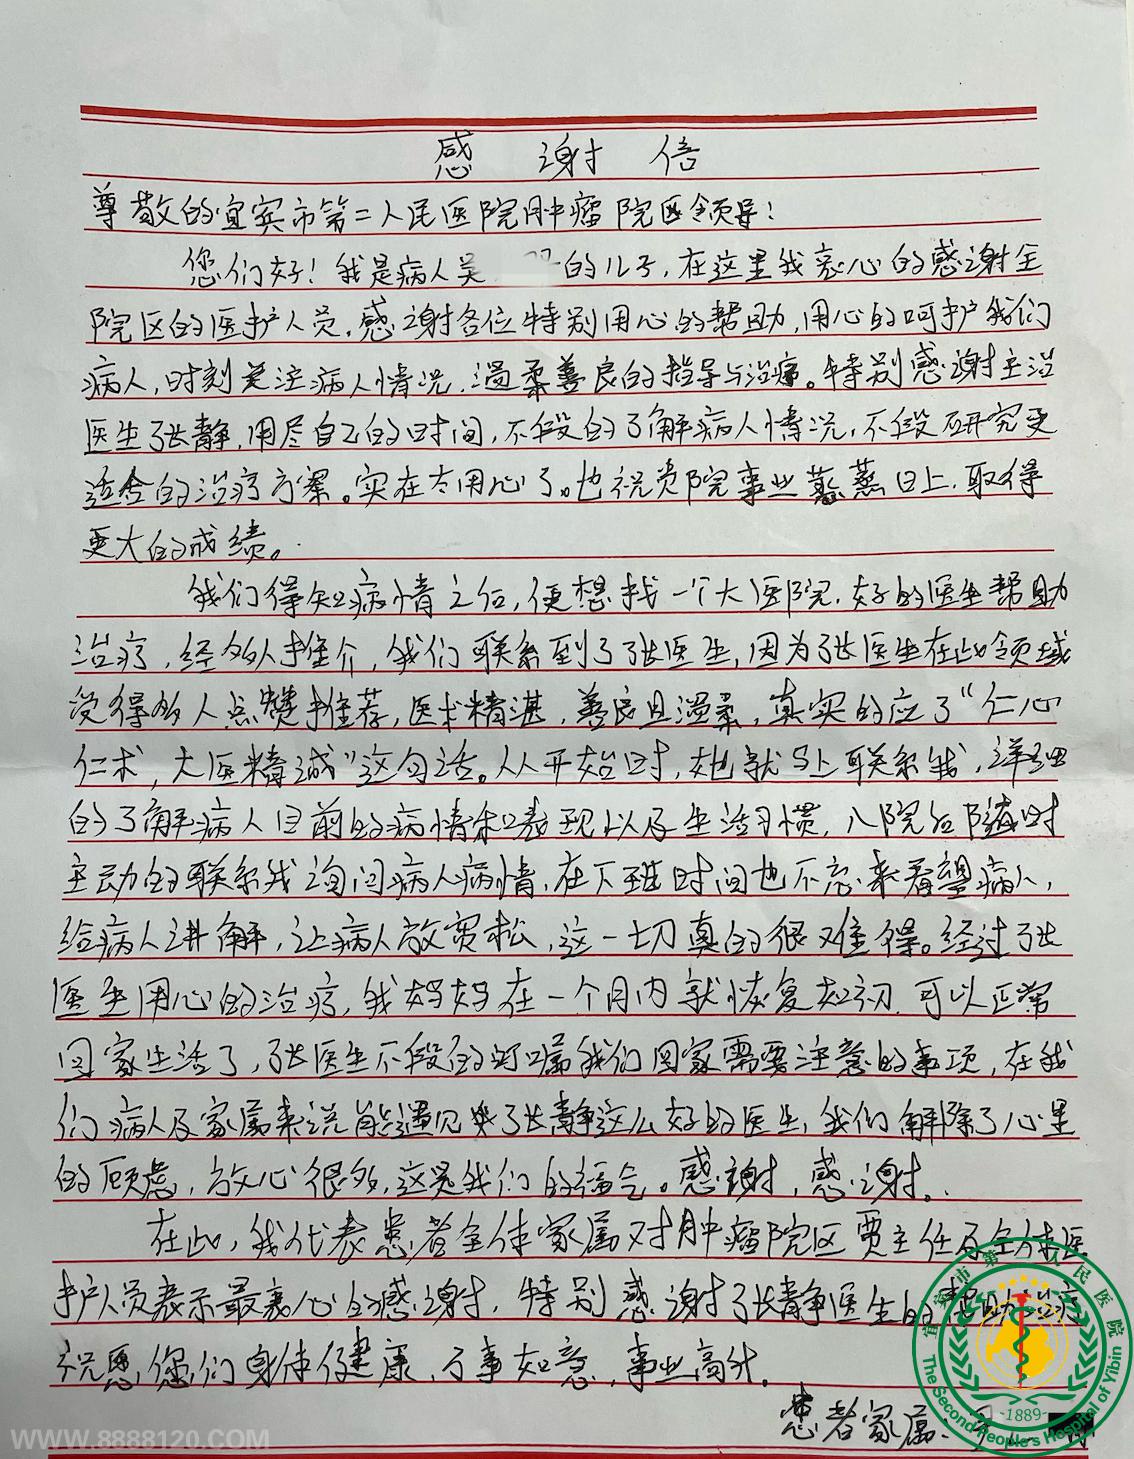 感谢信
尊敬的宜宾市第二人民医院肿瘤院区领导！
您们好！我是病人吴 的儿子，在这里我衷心的感谢全
院区的医护人员，感谢各位特别用心的帮助，用心的呵护我们
病人，时刻关注病人情况，温柔善良的指导与治疗。特别感谢主治
医生张静，用尽自己的时间，不段的了解病人情况，不段研究更
适合的治疗方案。实在太用心了。也祝贵院事业蒸蒸日上，取得
更大的成绩。
我们得知病情之后，便想找一个大医院，好的医生帮助
治疗，经多人推介，我们联系到了张医生，因为张医生在此领域
受得多人点赞推荐，医术精湛，善良且温柔，真实的应了“仁心
仁术，大医精诚”这句话。从开始时，她就马上联系我，详细
的了解病人目前的病情和表现以及生活习惯，入院后随时
主动的联系我询问病人病情，在下班时间也不忘来看望病人，
给病人讲解，让病人放宽松，这一切真的很难得。经过张
医生用心的治疗，我妈妈在一个月内就恢复如初，可以正常
回家生活了，张医生不段的叮嘱我们回家需要注意的事项，在我
们病人及家属来说能遇见张静这么好的医生，我们解除了心里
的顾虑，放心很多，这是我们的福气。感谢，感谢。
在此，我代表患者全体家属对肿瘤院区贾主任及全体医
护人员表示最衷心的感谢，特别感谢张静医生的帮助治疗
祝愿您们身体健康，万事如意，事业高升。
患者家属：
宜宾市第二人民医院
The Second People's Hospital of Yibin
-1889-
WWW.8888120.COM